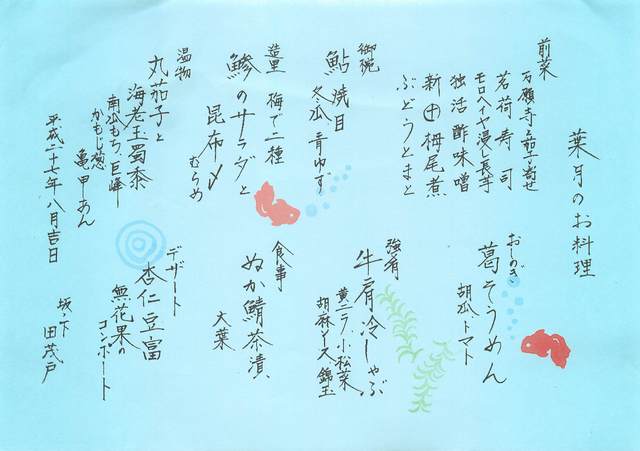 葉月のお料理
前菜
万願寺と茄子寄せ
茗荷寿司
モロヘイヤ浸し長芋
独活酢味噌
新⊕栂尾煮
ぶどうとまと
御椀
鮎焼目
冬瓜 青ゆず
造里 梅で二種
鯵のサラダと
昆布〆 むらめ
温物
丸茄子と
海老玉蜀黍
南瓜もち、巨峰
かもじ葱
亀甲あん
おしのぎ
葛そうめん
胡瓜トマト
強肴
牛肩冷しゃぶ
黄ニラ小松菜
胡麻ソース 錦玉
食事
ぬか鯖茶漬
大葉
デザート
杏仁豆富
無花果の
コンポート
平成二十七年八月吉日
坂ノ下
田茂戸